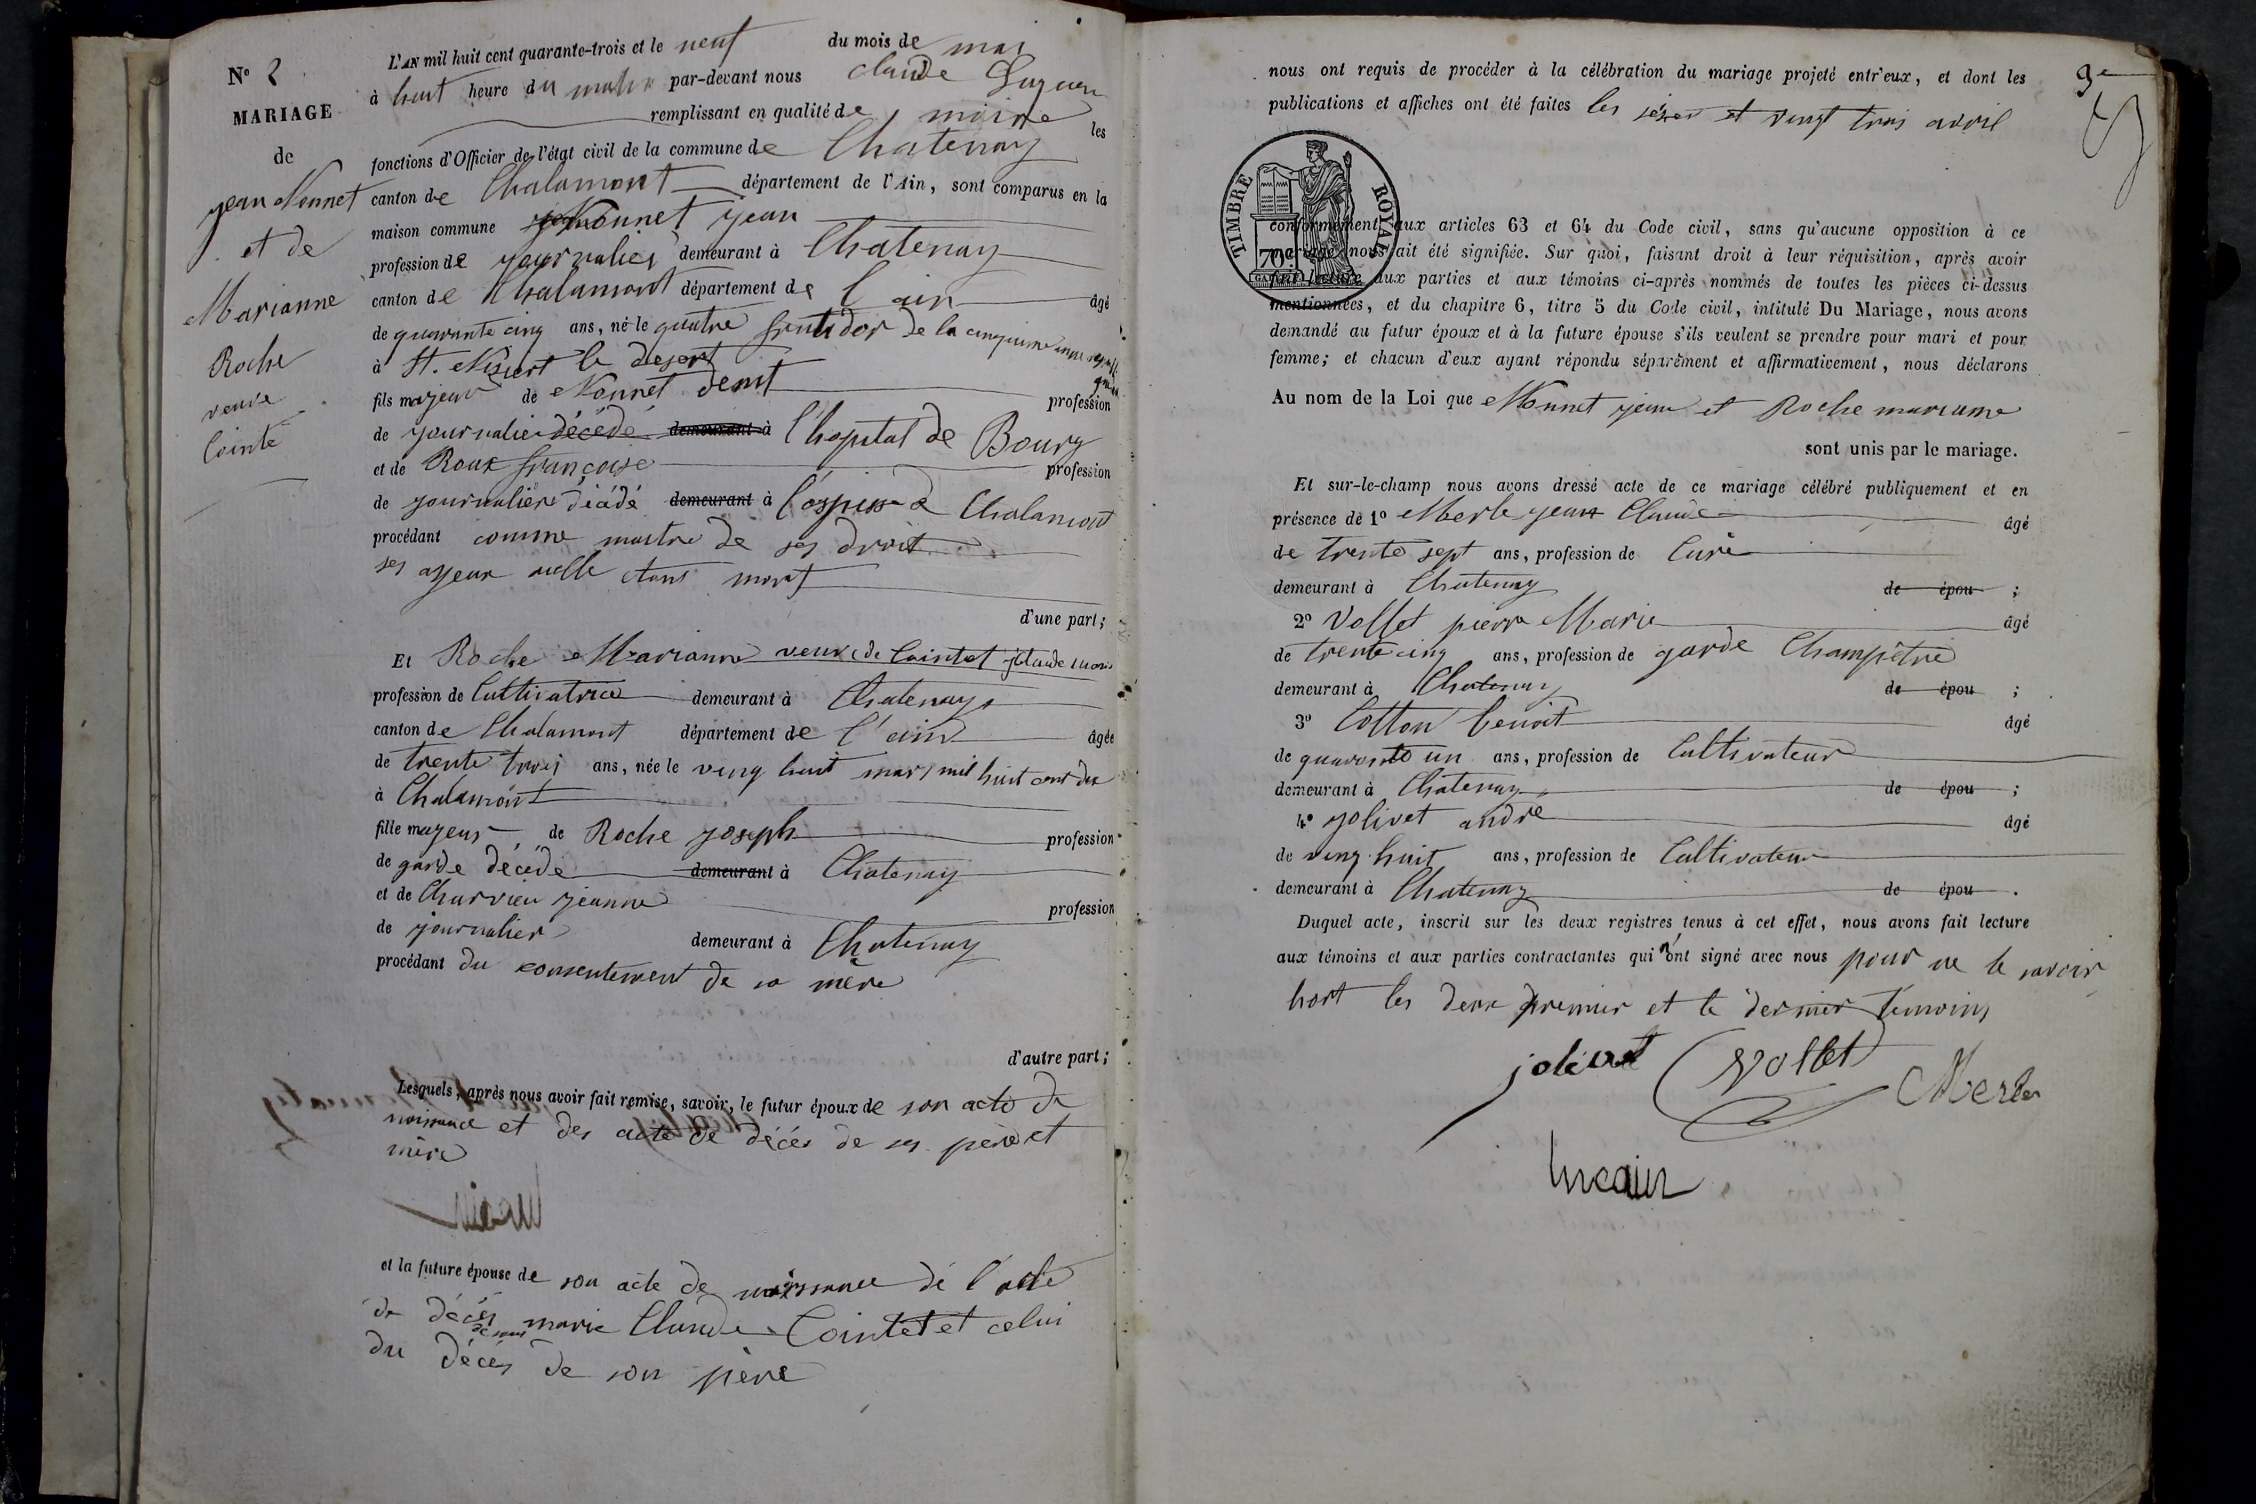 N° 2
MARIAGE
de
jean Monnet
et de
Marianne
Roche
veuve
Cointe
L'AN mil huit cent quarante-trois et le neuf du mois de mai
à huit heure du matin par-devant nous Claude
remplissant en qualité de maire les
fonctions d'Officier de l'état civil de la commune de Chatenay
canton de Chalamont département de l'Ain, sont comparus en la
maison commune Monnet jean
profession de journalier demeurant à Chatenay
canton de Chalamont département de l'ain âgé
de quarante cinq ans, né le quatre fructidor de la cinquieme
à St. Nizier le desert
fils majeur de Monnet denit profession
de journalier décédé demeurant à l'hopital de Bourg
et de Roux françoise profession
de journalière décédé demeurant à l'ospisse de Chalamont
procédant comme maitre de ses droit
ses ayeux etant mort
d'une part;
Et Roche Marianne veuve de Cointet Claude marie
profession de Cultivatrice demeurant à Chatenay
canton de Chalamont département de l'ain âgée
de trente trois ans, née le ving huit mars mil huit cent dix
à Chalamont
fille majeur de Roche joseph profession
de garde décédé demeurant à Chatenay
et de Charvieu jeanne profession
de journalier demeurant à Chatenay
procédant du consentement de sa mère
d'autre part;
Lesquels, après nous avoir fait remise, savoir, le futur époux de son acte de
naissance et des acte de décés de ses père et
mère
et la future épouse de son acte de naissance de l'acte
de décés marie Claude Cointet et celui
du décés de son père
9e
nous ont requis de procéder à la célébration du mariage projeté entr'eux, et dont les
publications et affiches ont été faites les seize et vingt trois avril
TIMBRE ROYAL
70
conformément aux articles 63 et 64 du Code civil, sans qu'aucune opposition à ce
mariage nous ait été signifiée. Sur quoi, faisant droit à leur réquisition, après avoir
fait lecture aux parties et aux témoins ci-après nommés de toutes les pièces ci-dessus
mentionnées, et du chapitre 6, titre 5 du Code civil, intitulé Du Mariage, nous avons
demandé au futur époux et à la future épouse s'ils veulent se prendre pour mari et pour
femme; et chacun d'eux ayant répondu séparément et affirmativement, nous déclarons
Au nom de la Loi que Monnet jean et Roche marianne
sont unis par le mariage.
Et sur-le-champ nous avons dressé acte de ce mariage célébré publiquement et en
présence de 1° Merle jean Claude âgé
de trente sept ans, profession de Curé
demeurant à Chatenay de épou ;
2° Vollet pierre Marie âgé
de trente cinq ans, profession de garde Champêtre
demeurant à Chatenay de épou ;
3° Cotton benoit âgé
de quarante un ans, profession de Cultivateur
demeurant à Chatenay de épou ;
4° jolivet andré âgé
de ving huit ans, profession de Cultivateur
demeurant à Chatenay de épou .
Duquel acte, inscrit sur les deux registres tenus à cet effet, nous avons fait lecture
aux témoins et aux parties contractantes qui n'ont signé avec nous pour ne le savoir
hort les deux premier et le dernier témoins
jolivet Vollet Merle